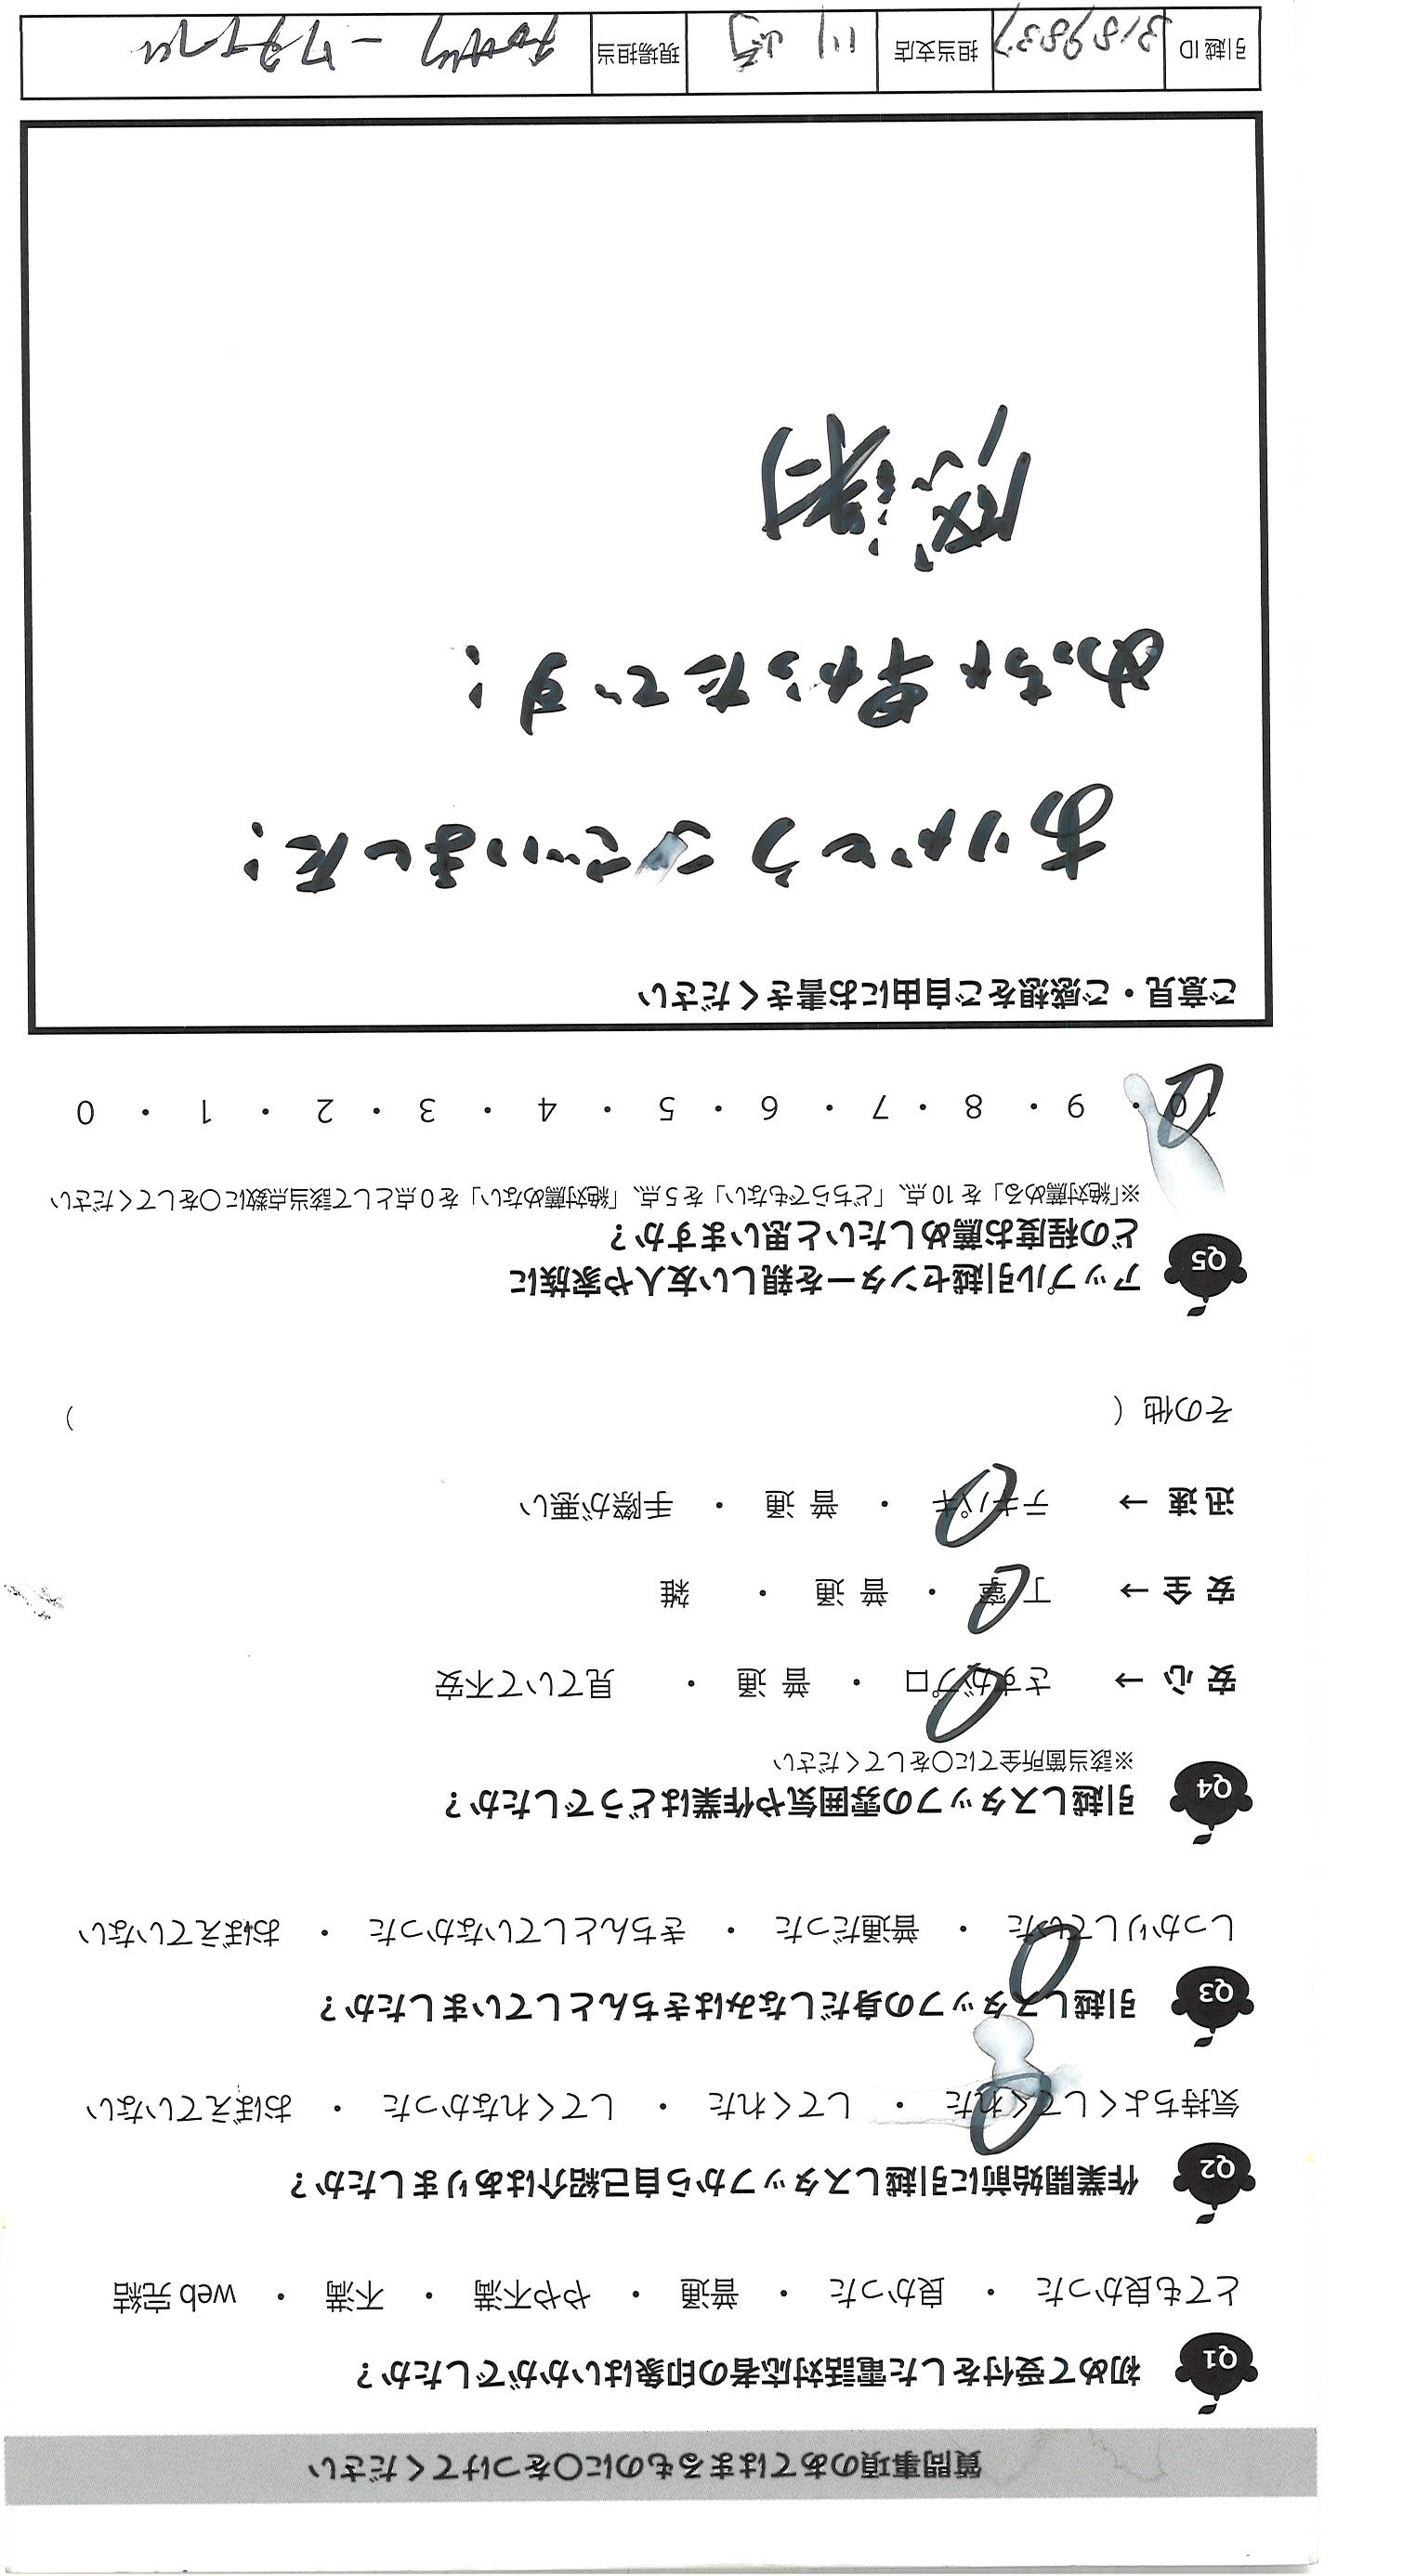 質問事項のあてはまるものに○をつけてください
Q1 初めて受付をした電話対応者の印象はいかがでしたか？
とても良かった ・ 良かった ・ 普通 ・ やや不満 ・ 不満 ・ web 完結
Q2 作業開始前に引越しスタッフから自己紹介はありましたか？
気持ちよくしてくれた ・ してくれた ・ してくれなかった ・ おぼえていない
Q3 引越しスタッフの身だしなみはきちんとしていましたか？
しっかりしていた ・ 普通だった ・ きちんとしていなかった ・ おぼえていない
Q4 引越しスタッフの雰囲気や作業はどうでしたか？
※該当箇所全てに○をしてください
安 心 → さすがプロ ・ 普 通 ・ 見ていて不安
安 全 → 丁 寧 ・ 普 通 ・ 雑
迅 速 → テキパキ ・ 普 通 ・ 手際が悪い
その他（ ）
Q5 アップル引越センターを親しい友人や家族に
どの程度お薦めしたいと思いますか？
※「絶対薦める」を 10 点、「どちらでもない」を 5 点、「絶対薦めない」を 0 点として該当点数に○をしてください
10 ・ 9 ・ 8 ・ 7 ・ 6 ・ 5 ・ 4 ・ 3 ・ 2 ・ 1 ・ 0
ご意見・ご感想をご自由にお書きください
ありがとうございました！
めっちゃ早かったです！
感謝
引越 ID 3189837 担当支店 川崎 現場担当